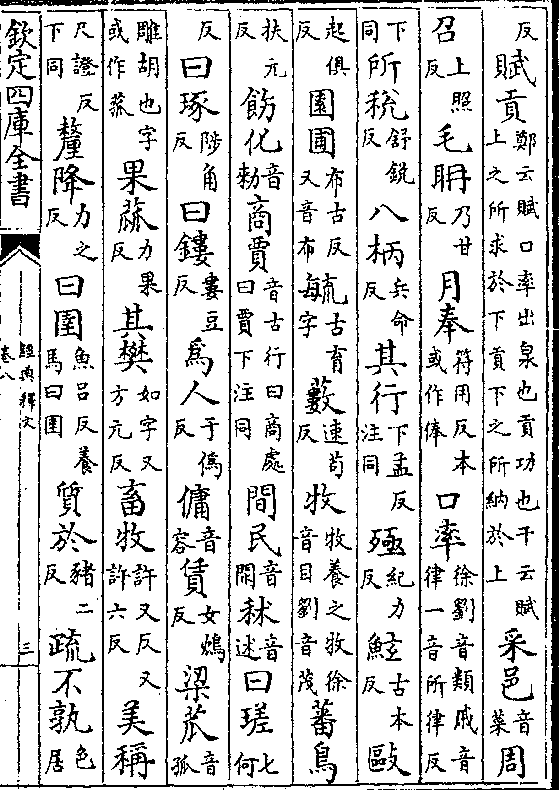 反賦貢鄭云賦口率出泉也貢功也干云賦上之所求於下貢下之所納於上采邑音菜周
召上照反毛聃乃甘反月奉符用反本或作俸口率徐劉音類戚音律一音所律反
下同所稅舒銳反八柄兵命反其行下孟反注同殛紀力反鮌古本反歐
起俱反園圃布古反又音布毓古育每字藪速苟反牧牧養之牧徐音目劉音茂蕃鳥
扶元反飭化音勑商賈音古行曰商處曰賈下注同閒民音閑秫音述曰瑳七何
反曰琢陟角反曰鏤婁豆反爲人于僞反傭音容賃女鴆反梁苽音孤
雕胡也字或作菰果蓏力果反其樊如字又方元反畜牧許又反又許六反美稱
尺證反下同釐降力之反曰圉魚呂反養馬曰圉質於豬二反疏不孰色居
欽定四庫全書
經典釋文
卷八
三